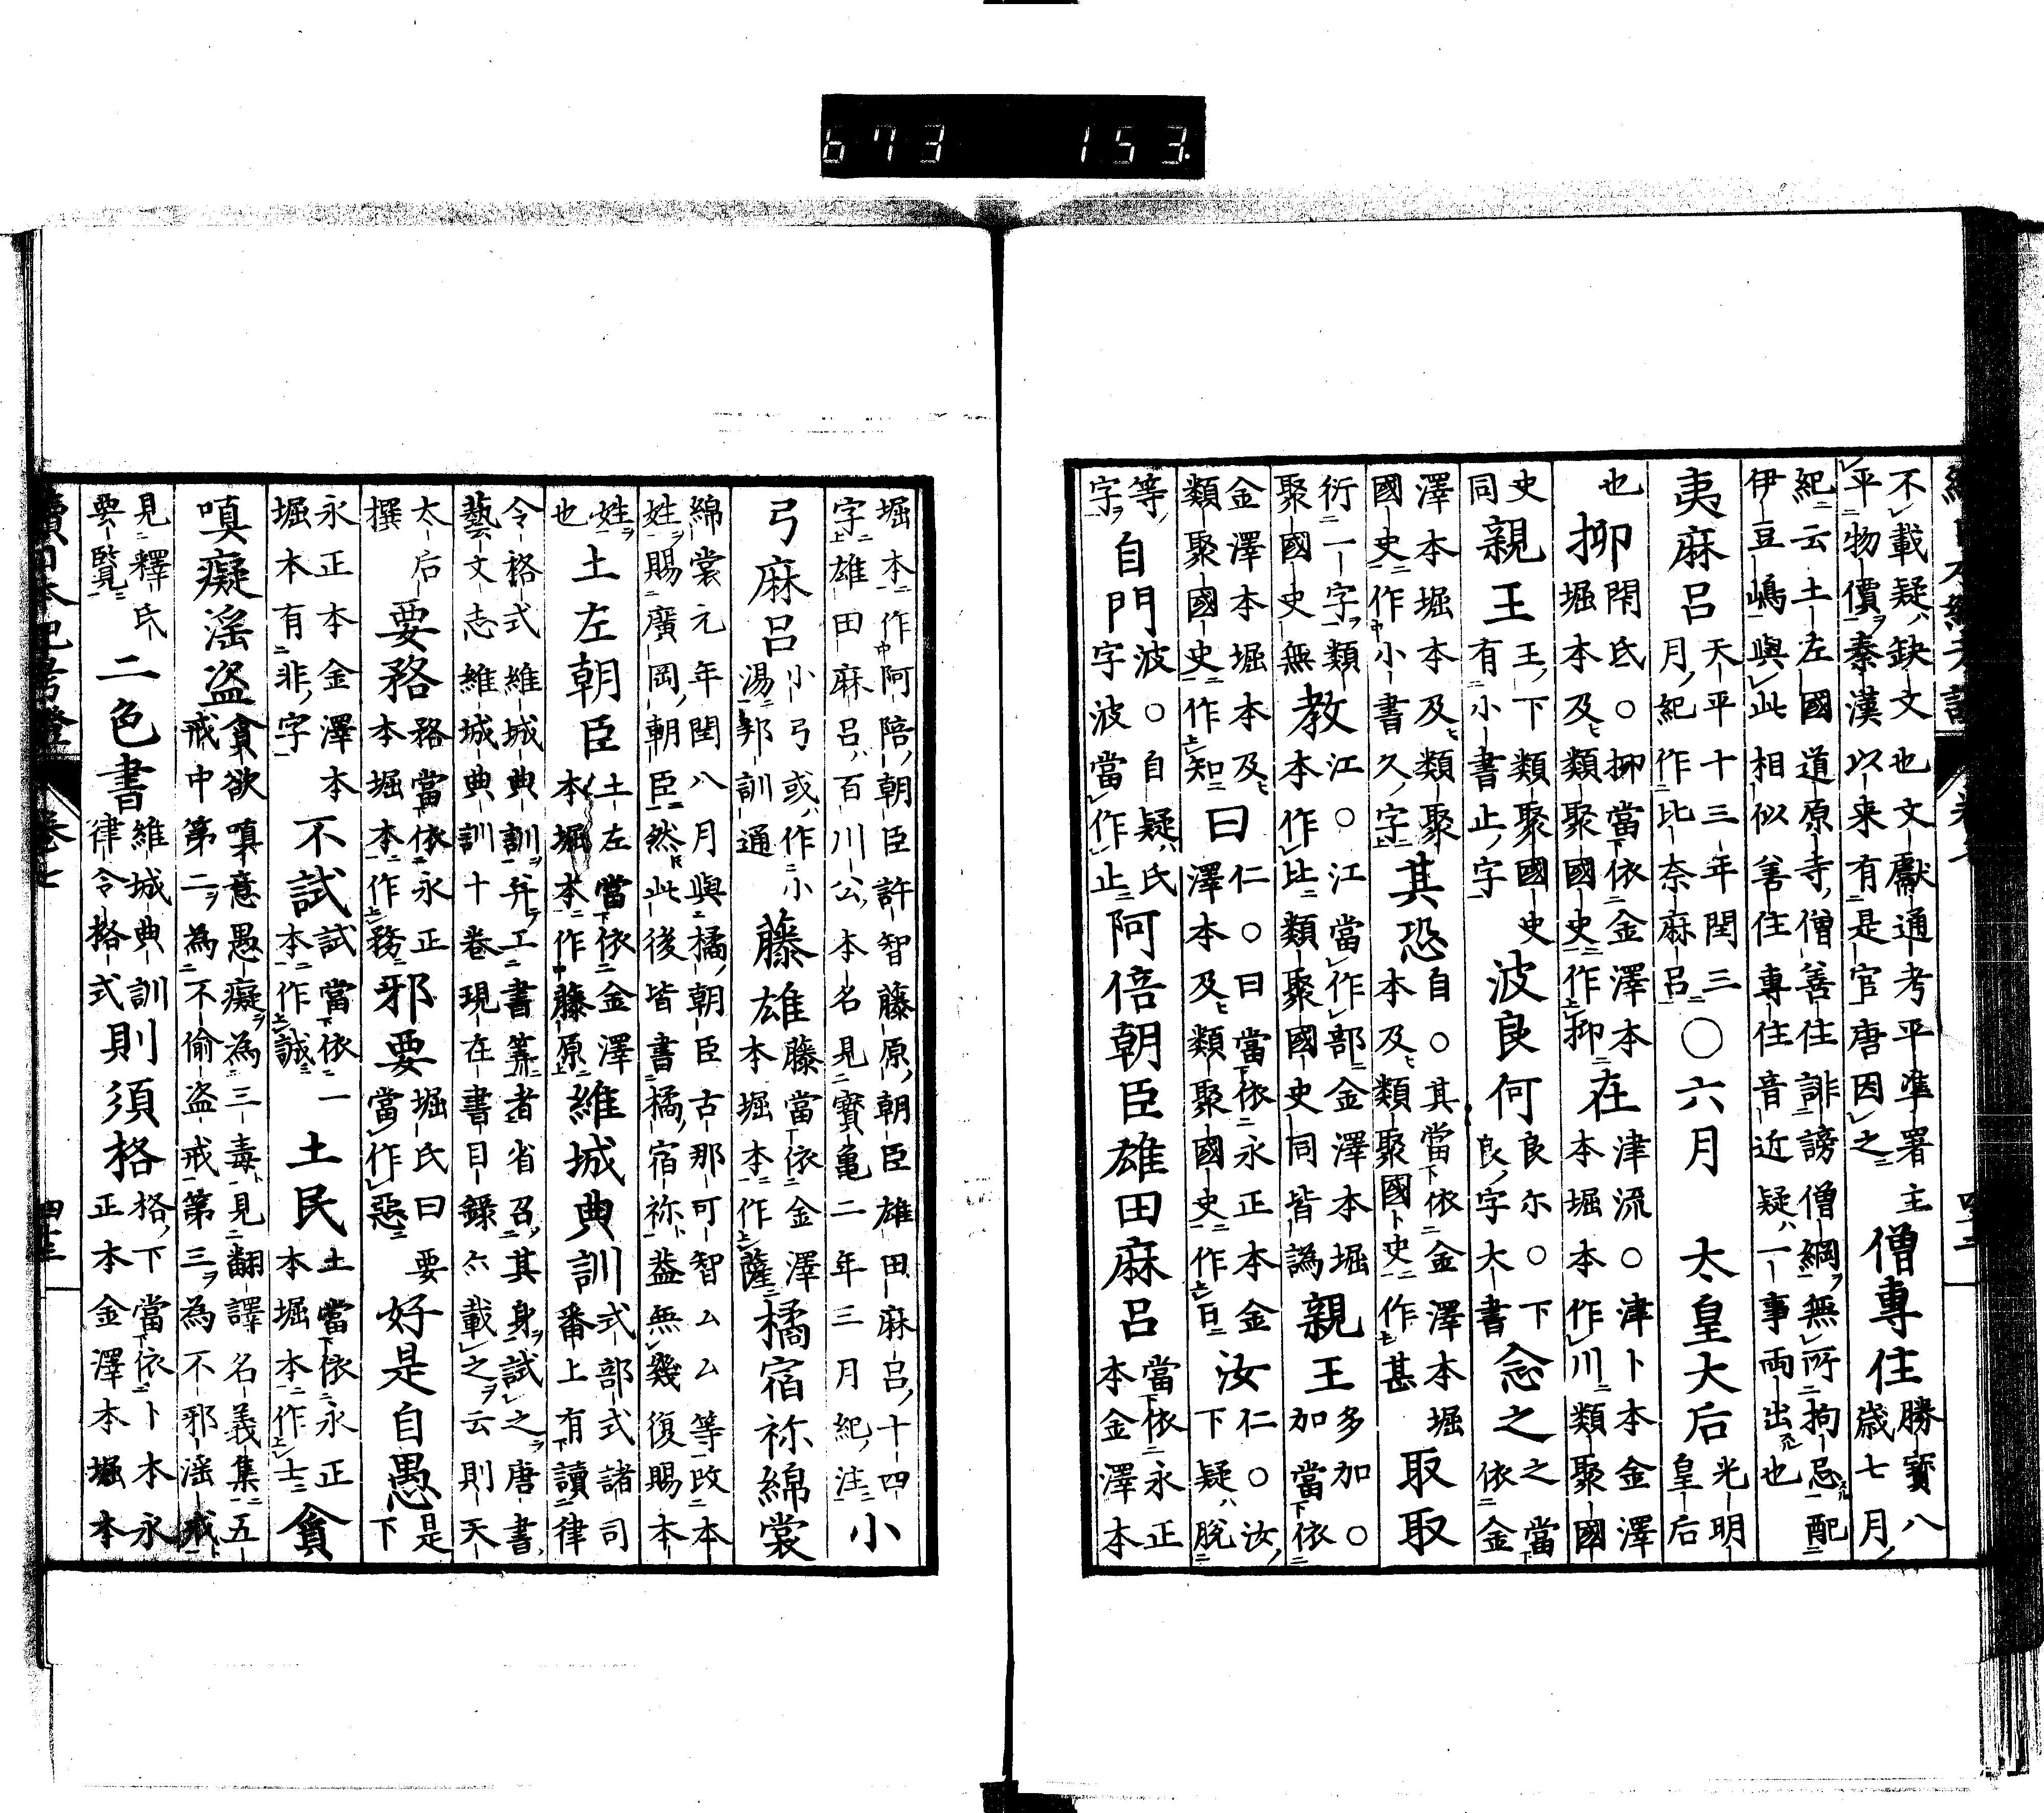 673 153.
不載疑缺文也文獻通考平準署主
平物價秦漢以来有是官唐因之
僧專住
勝寶八
歳七月
紀云土左國道原寺僧善住誹謗僧綱無所拘忌配
伊豆嶋與此相似善住專住音近疑ハ一事両出也
夷麻呂
天平十三年閏三
月紀作比奈麻呂
○六月
太皇大后
光明
皇后
也
抑
閑氏○抑當依金澤本
堀本及類聚國史作抑
在
津流○津卜本金澤
本堀本作川類聚國
史
同
親王
王下類聚國史
有小書止字
波良何
良尓○下
良字大書
念之
之當
依金
澤本堀本及類聚
國史作小書久字
其恐
自○其當依金澤本堀
本及類聚國卜史作甚
取取
衍一字類
聚國史無
教
江○江當作部金澤本堀
本作比類聚國史同皆譌
親王
多加○
加當依
金澤本堀本及
類聚國史作知
曰
仁○曰當依永正本金
澤本及類聚國史作百
汝
仁○汝
下疑ハ脫
等
字
自門
波○自疑氏
字波當作止
阿倍朝臣雄田麻呂
當依永正
本金澤本
堀本作阿陪朝臣許智藤原朝臣雄田麻呂十四
字雄田麻呂百川公本名見寶亀二年三月紀注
小
弓麻呂
小弓或作小
湯郭訓通
藤雄
藤當依金澤
本堀本作薩
橘宿祢綿裳
綿裳元年閏八月與橘朝臣古那可智厶厶等改本
姓賜廣岡朝臣然此後皆書橘宿祢葢無幾復賜本
姓
也
土左朝臣
土左當依金澤
本堀本作藤原
維城典訓
式部式諸司
番上有讀律
令格式維城典訓并工書筭者省召其身試之唐書
藝文志維城典訓十卷現在書目錄亦載之云則天
太后
撰
要務
務當依永正
本堀本作務
邪要
堀氏曰要
當作惡
好是自愚
是
下
永正本金澤本
堀本有非字
不試
試當依一
本作誠
土民
土當依永正
本堀本作士
貪
嗔癡滛盜
貪欲嗔恚愚癡為三毒見翻譯名義集五
戒中第二為不偷盜戒第三為不邪滛戒
見釋氏
要覽
二色書
維城典訓
律令格式
則須格
格下當依卜本永
正本金澤本堀本
續日本紀考證
卷七
四十三